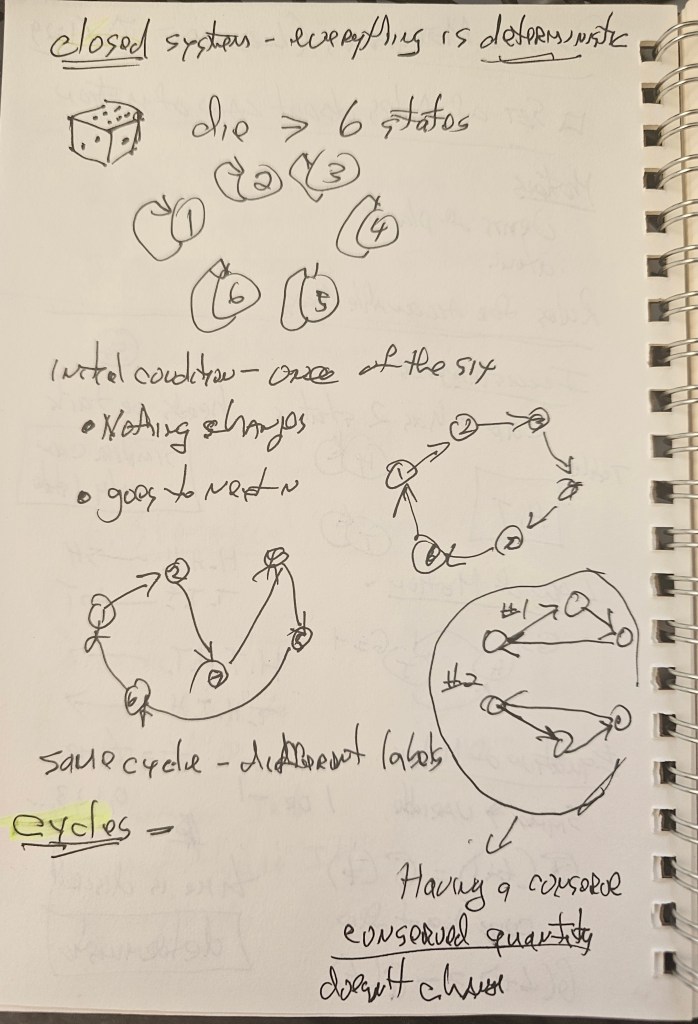 closed system - everything is deterministic
die > 6 states
1 2 3 4 5 6
Initial condition - once of the six
• Nothing changes
• goes to next n
1 2 3
6
1 2
6
#1
#2
same cycle - different labels
cycles =
Having a conserve
conserved quantity
doesn't change